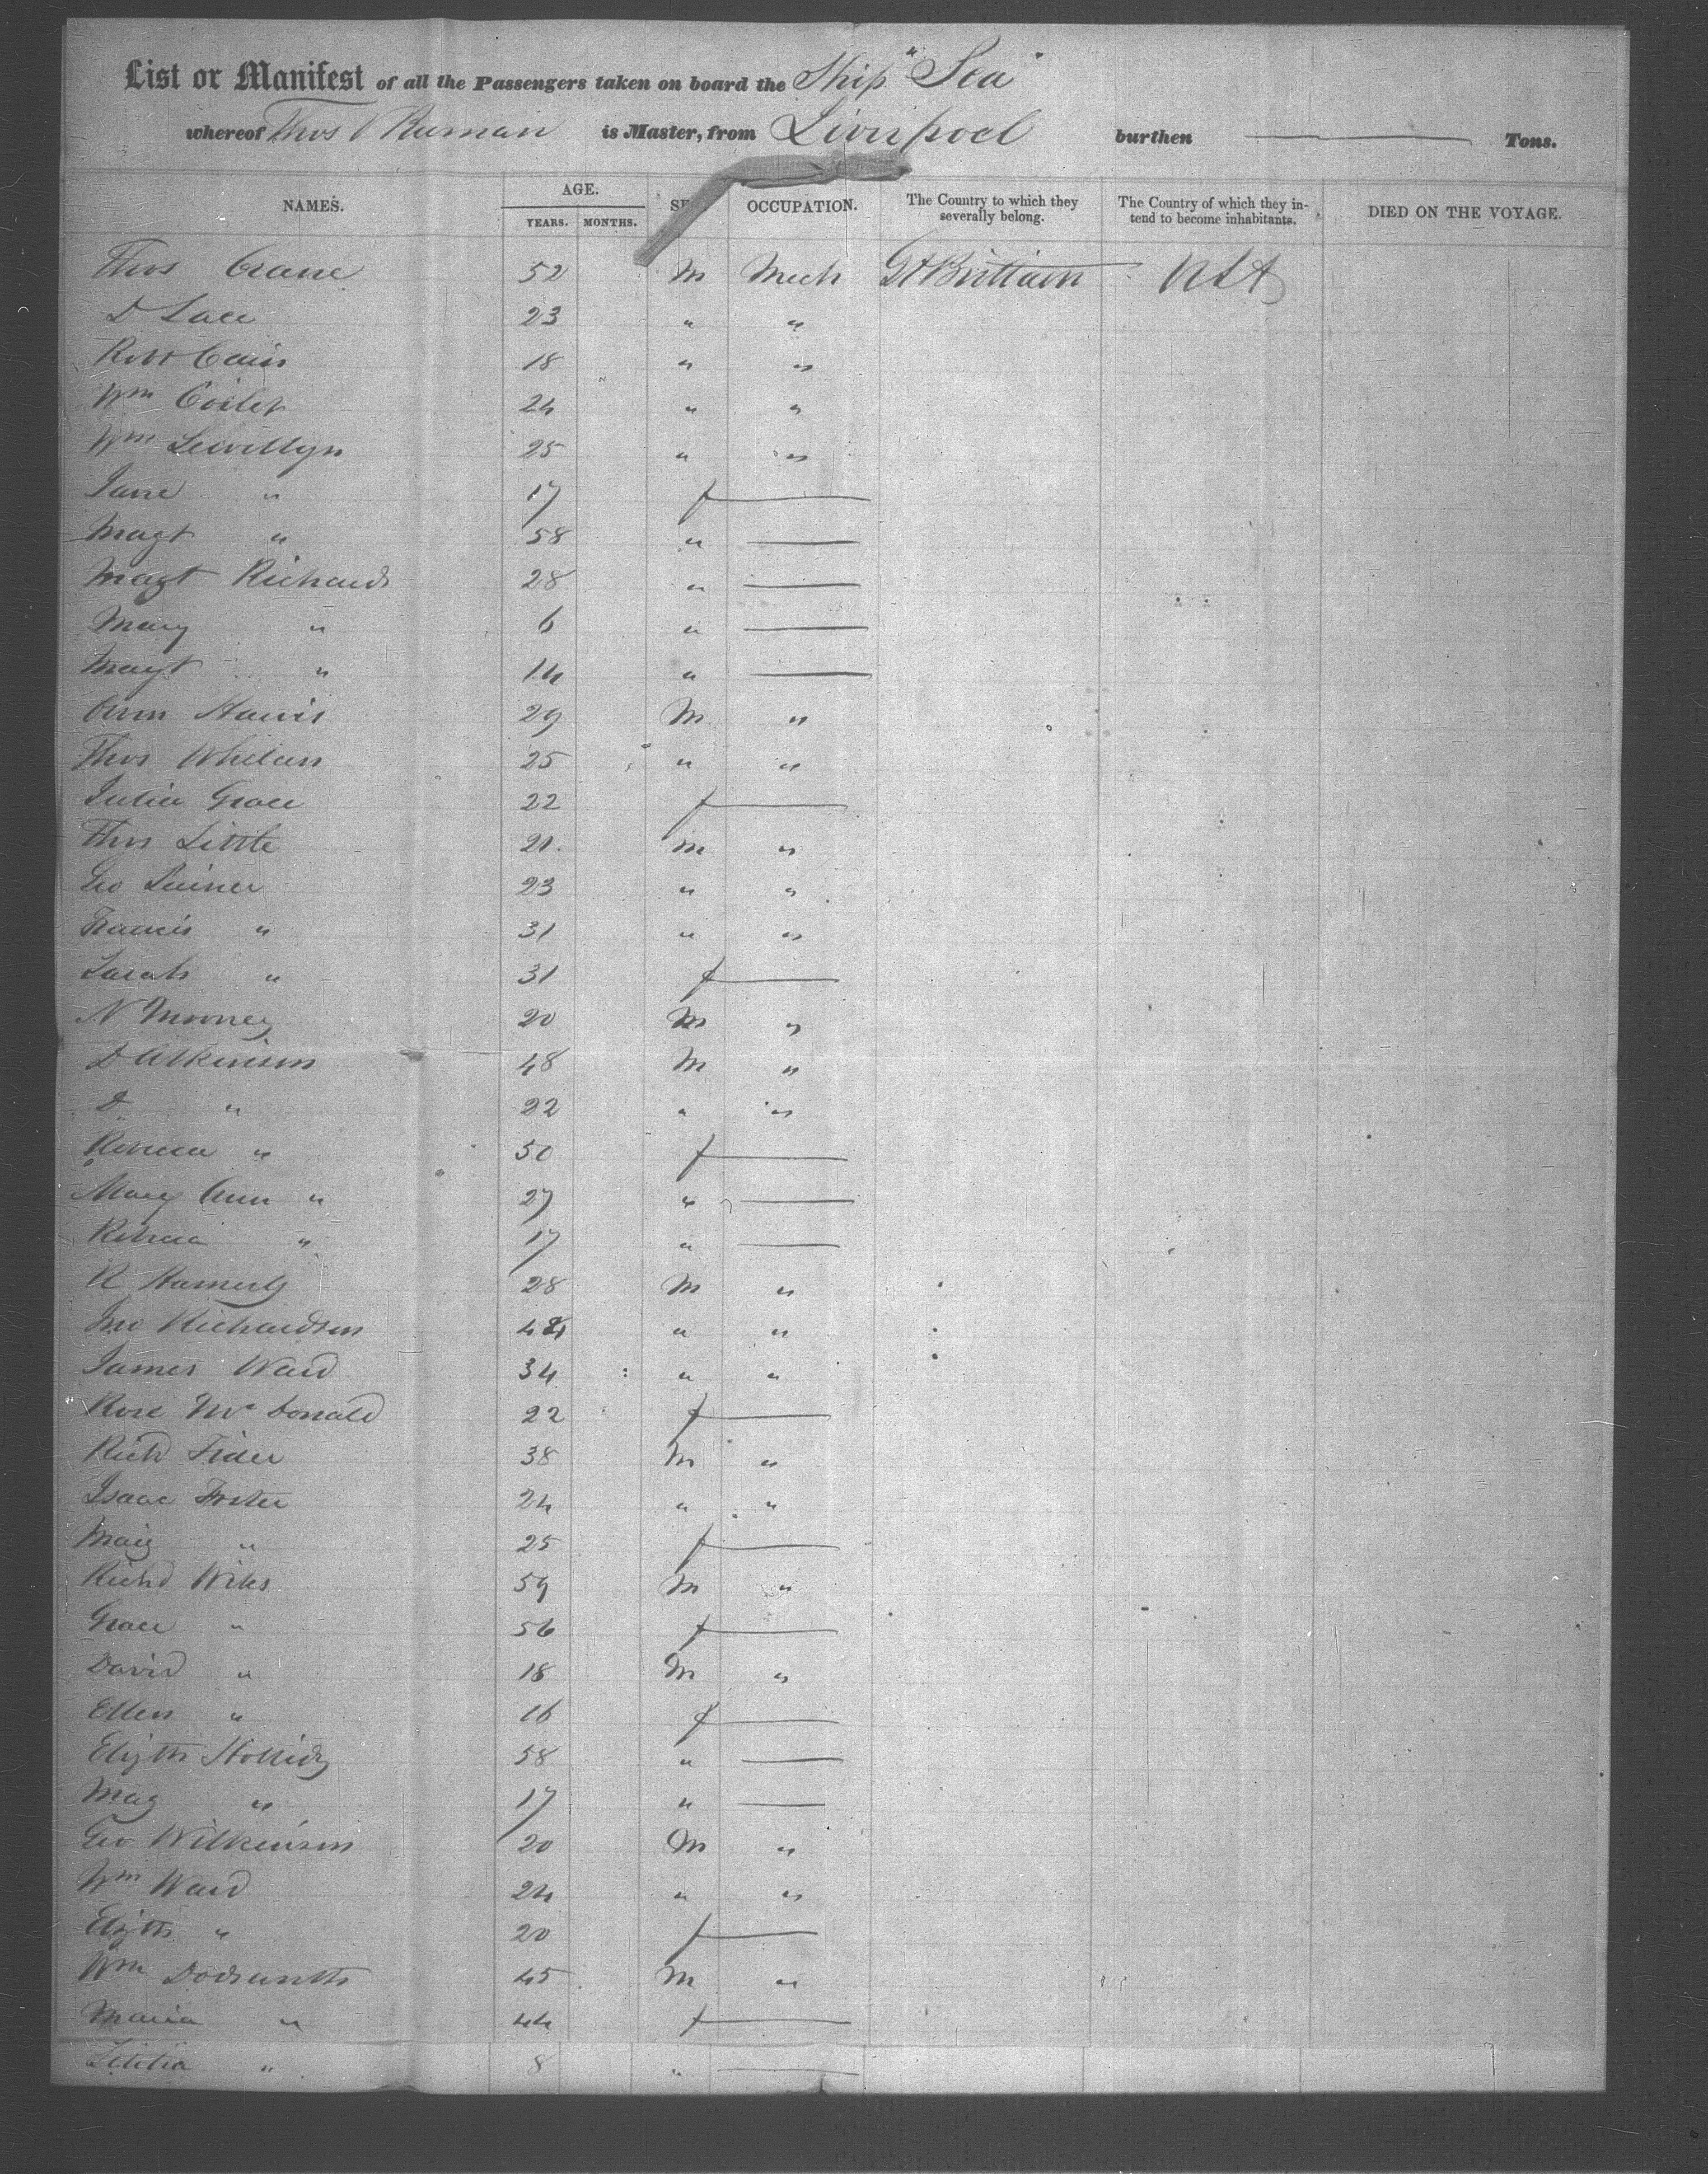 List or Manifest of all the Passengers taken on board the Ship "Sea"
whereof Thos is Master, from Liverpool burthen —— Tons.
NAMES. AGE. YEARS. MONTHS. OCCUPATION. The Country to which they severally belong. The Country of which they intend to become inhabitants. DIED ON THE VOYAGE.
Thos Crane 52 M Mech Gt Brittain USA
D Lace 23 " "
Robt Cain 18 " "
Wm 24 " "
Wm Lewillyn 25 " "
Jane " 17 f —
Magt " 58 " —
Magt Richards 28 " —
Mary " 6 " —
Magt " 14 " —
Harris 29 M "
Thos Whelan 25 " "
Julia Grace 22 f —
Thos Little 21 m "
Geo 23 " "
Francis " 31 " "
Sarah " 31 f —
N Mooney 20 M "
D Atkinson 48 M "
D " 22 " "
Rebecca " 50 f —
Mary Ann " 27 " —
Rebecca " 17 " —
R 28 M "
Jno Richardson " "
James Ward 34 " "
Rose McDonald 22 f —
Richd 38 M "
Isaac Foster 24 " "
Mary " 25 f —
Richd Wiles 59 M "
Grace " 56 f —
David " 18 M "
Ellen " 16 f —
Elizth Hollidy 58 " —
Mag " 17 " —
Geo Wilkinson 20 M "
Wm Ward 24 " "
Elizth " 20 f —
Wm 45 M "
Maria " 44 f —
Letitia " 8 " —